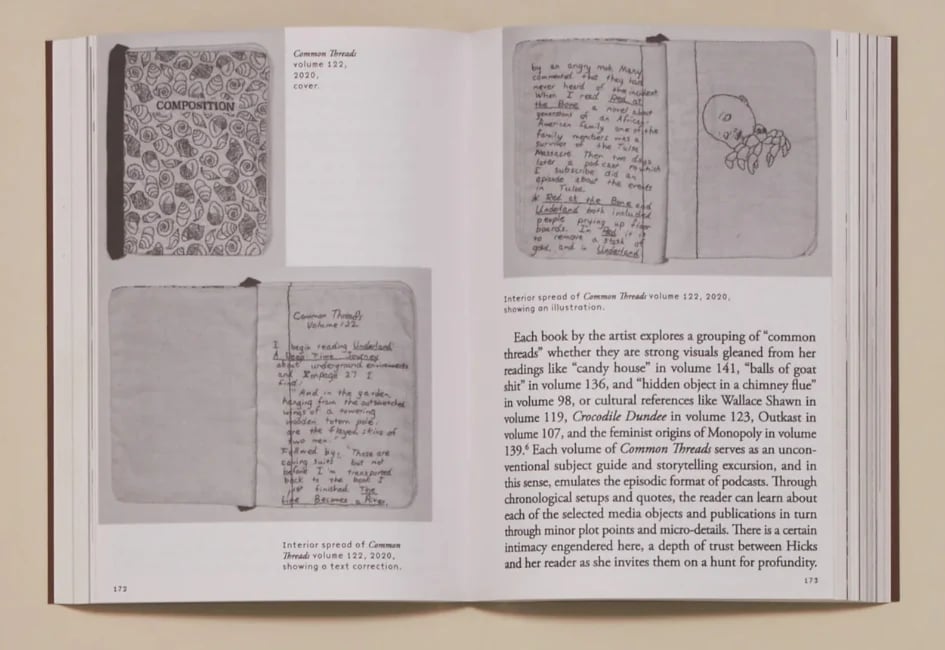 Common Threads
volume 122,
2020,
cover.
COMPOSITION
Common Threads
Volume 122
I begin reading Underland
A Deep Time Journey
about underground
and page 27 I
find:
"And in the garden,
hanging from the outstretched
wings of a towering
wooden totem pole,
are the flayed skins of
two men."
Followed by: "These are
caving suits but not
before I'm transported
back to the book I
just finished The
Line Becomes a River,
Interior spread of Common
Threads volume 122, 2020,
showing a text correction.
172
by an angry mob. Many
commented that they had
never heard of the incident.
When I read Red at
the Bone a novel about
generations of an African-
American family one of the
family members was a
survivor of the Tulsa
Massacre. Then two days
later a podcast to which
I subscribe did an
episode about the events
in Tulsa.
Red at the Bone and
Underland both included
people prying up floor
boards. In Red it is
to remove a stash of
gold, and in Underland
Interior spread of Common Threads volume 122, 2020,
showing an illustration.
Each book by the artist explores a grouping of “common
threads” whether they are strong visuals gleaned from her
readings like “candy house” in volume 141, “balls of goat
shit” in volume 136, and “hidden object in a chimney flue”
in volume 98, or cultural references like Wallace Shawn in
volume 119, Crocodile Dundee in volume 123, Outkast in
volume 107, and the feminist origins of Monopoly in volume
139.⁶ Each volume of Common Threads serves as an uncon-
ventional subject guide and storytelling excursion, and in
this sense, emulates the episodic format of podcasts. Through
chronological setups and quotes, the reader can learn about
each of the selected media objects and publications in turn
through minor plot points and micro-details. There is a certain
intimacy engendered here, a depth of trust between Hicks
and her reader as she invites them on a hunt for profundity.
173